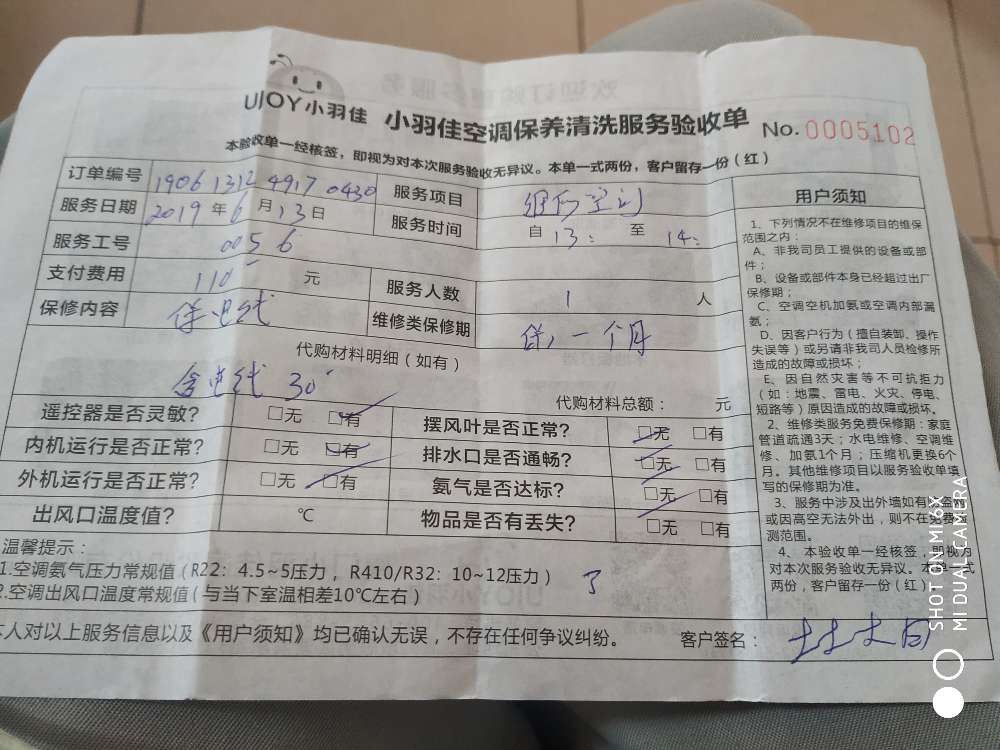 UIOY小羽佳 小羽佳空调保养清洗服务验收单 No. 0005102
本验收单一经核签，即视为对本次服务验收无异议。本单一式两份，客户留存一份（红）
订单编号 1906 1312 4917 0430 服务项目 维修空调
服务日期 2019 年 6 月 13 日 服务时间 自 13: 至 14:
服务工号 0056
支付费用 110 元 服务人数 1 人
保修内容 电线 维修类保修期 一个月
代购材料明细（如有）
含电线 30
代购材料总额： 元
遥控器是否灵敏？ □无 □有 摆风叶是否正常？ □无 □有
内机运行是否正常？ □无 □有 排水口是否通畅？ □无 □有
外机运行是否正常？ □无 □有 氨气是否达标？ □无 □有
出风口温度值？ ℃ 物品是否有丢失？ □无 □有
温馨提示：
1.空调氨气压力常规值（R22：4.5~5压力，R410/R32：10~12压力）
2.空调出风口温度常规值（与当下室温相差10℃左右）
本人对以上服务信息以及《用户须知》均已确认无误，不存在任何争议纠纷。 客户签名：
用户须知
1、下列情况不在维修项目的维保
范围之内：
A、非我司员工提供的设备或部
件；
B、设备或部件本身已经超过出厂
保修期；
C、空调空机加氨或空调内部漏
氨；
D、因客户行为（擅自装卸、操作
失误等）或另请非我司人员检修所
造成的故障或损坏；
E、因自然灾害等不可抗拒力
（如：地震、雷电、火灾、停电、
短路等）原因造成的故障或损坏。
2、维修类服务免费保修期：家庭
管道疏通3天；水电维修、空调维
修、加氨1个月；压缩机更换6个
月。其他维修项目以服务验收单填
写的保修期为准。
3、服务中涉及出外墙如有防盗网
或因高空无法外出，则不在免费检
测范围。
4、本验收单一经核签，即视为
对本次服务验收无异议。本单一式
两份，客户留存一份（红）
SHOT ON MI 6X
MI DUAL CAMERA